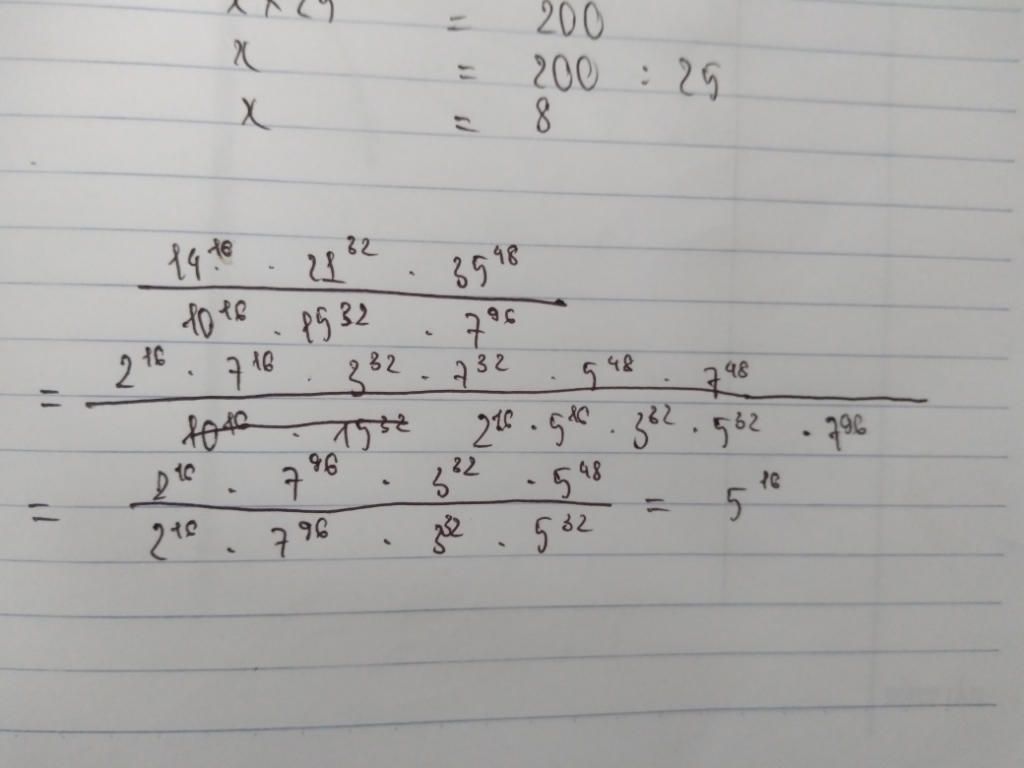 = 200
x = 200 : 25
x = 8
14¹⁶ · 21³² · 35⁴⁸
10¹⁶ · 15³² · 7⁹⁶
= 2¹⁶ · 7¹⁶ · 3³² · 7³² · 5⁴⁸ · 7⁴⁸
10¹⁶ · 15³² 2¹⁶ · 5¹⁶ · 3³² · 5³² · 7⁹⁶
= 2¹⁶ · 7⁹⁶ · 3³² · 5⁴⁸ = 5¹⁶
2¹⁶ · 7⁹⁶ · 3³² · 5³²